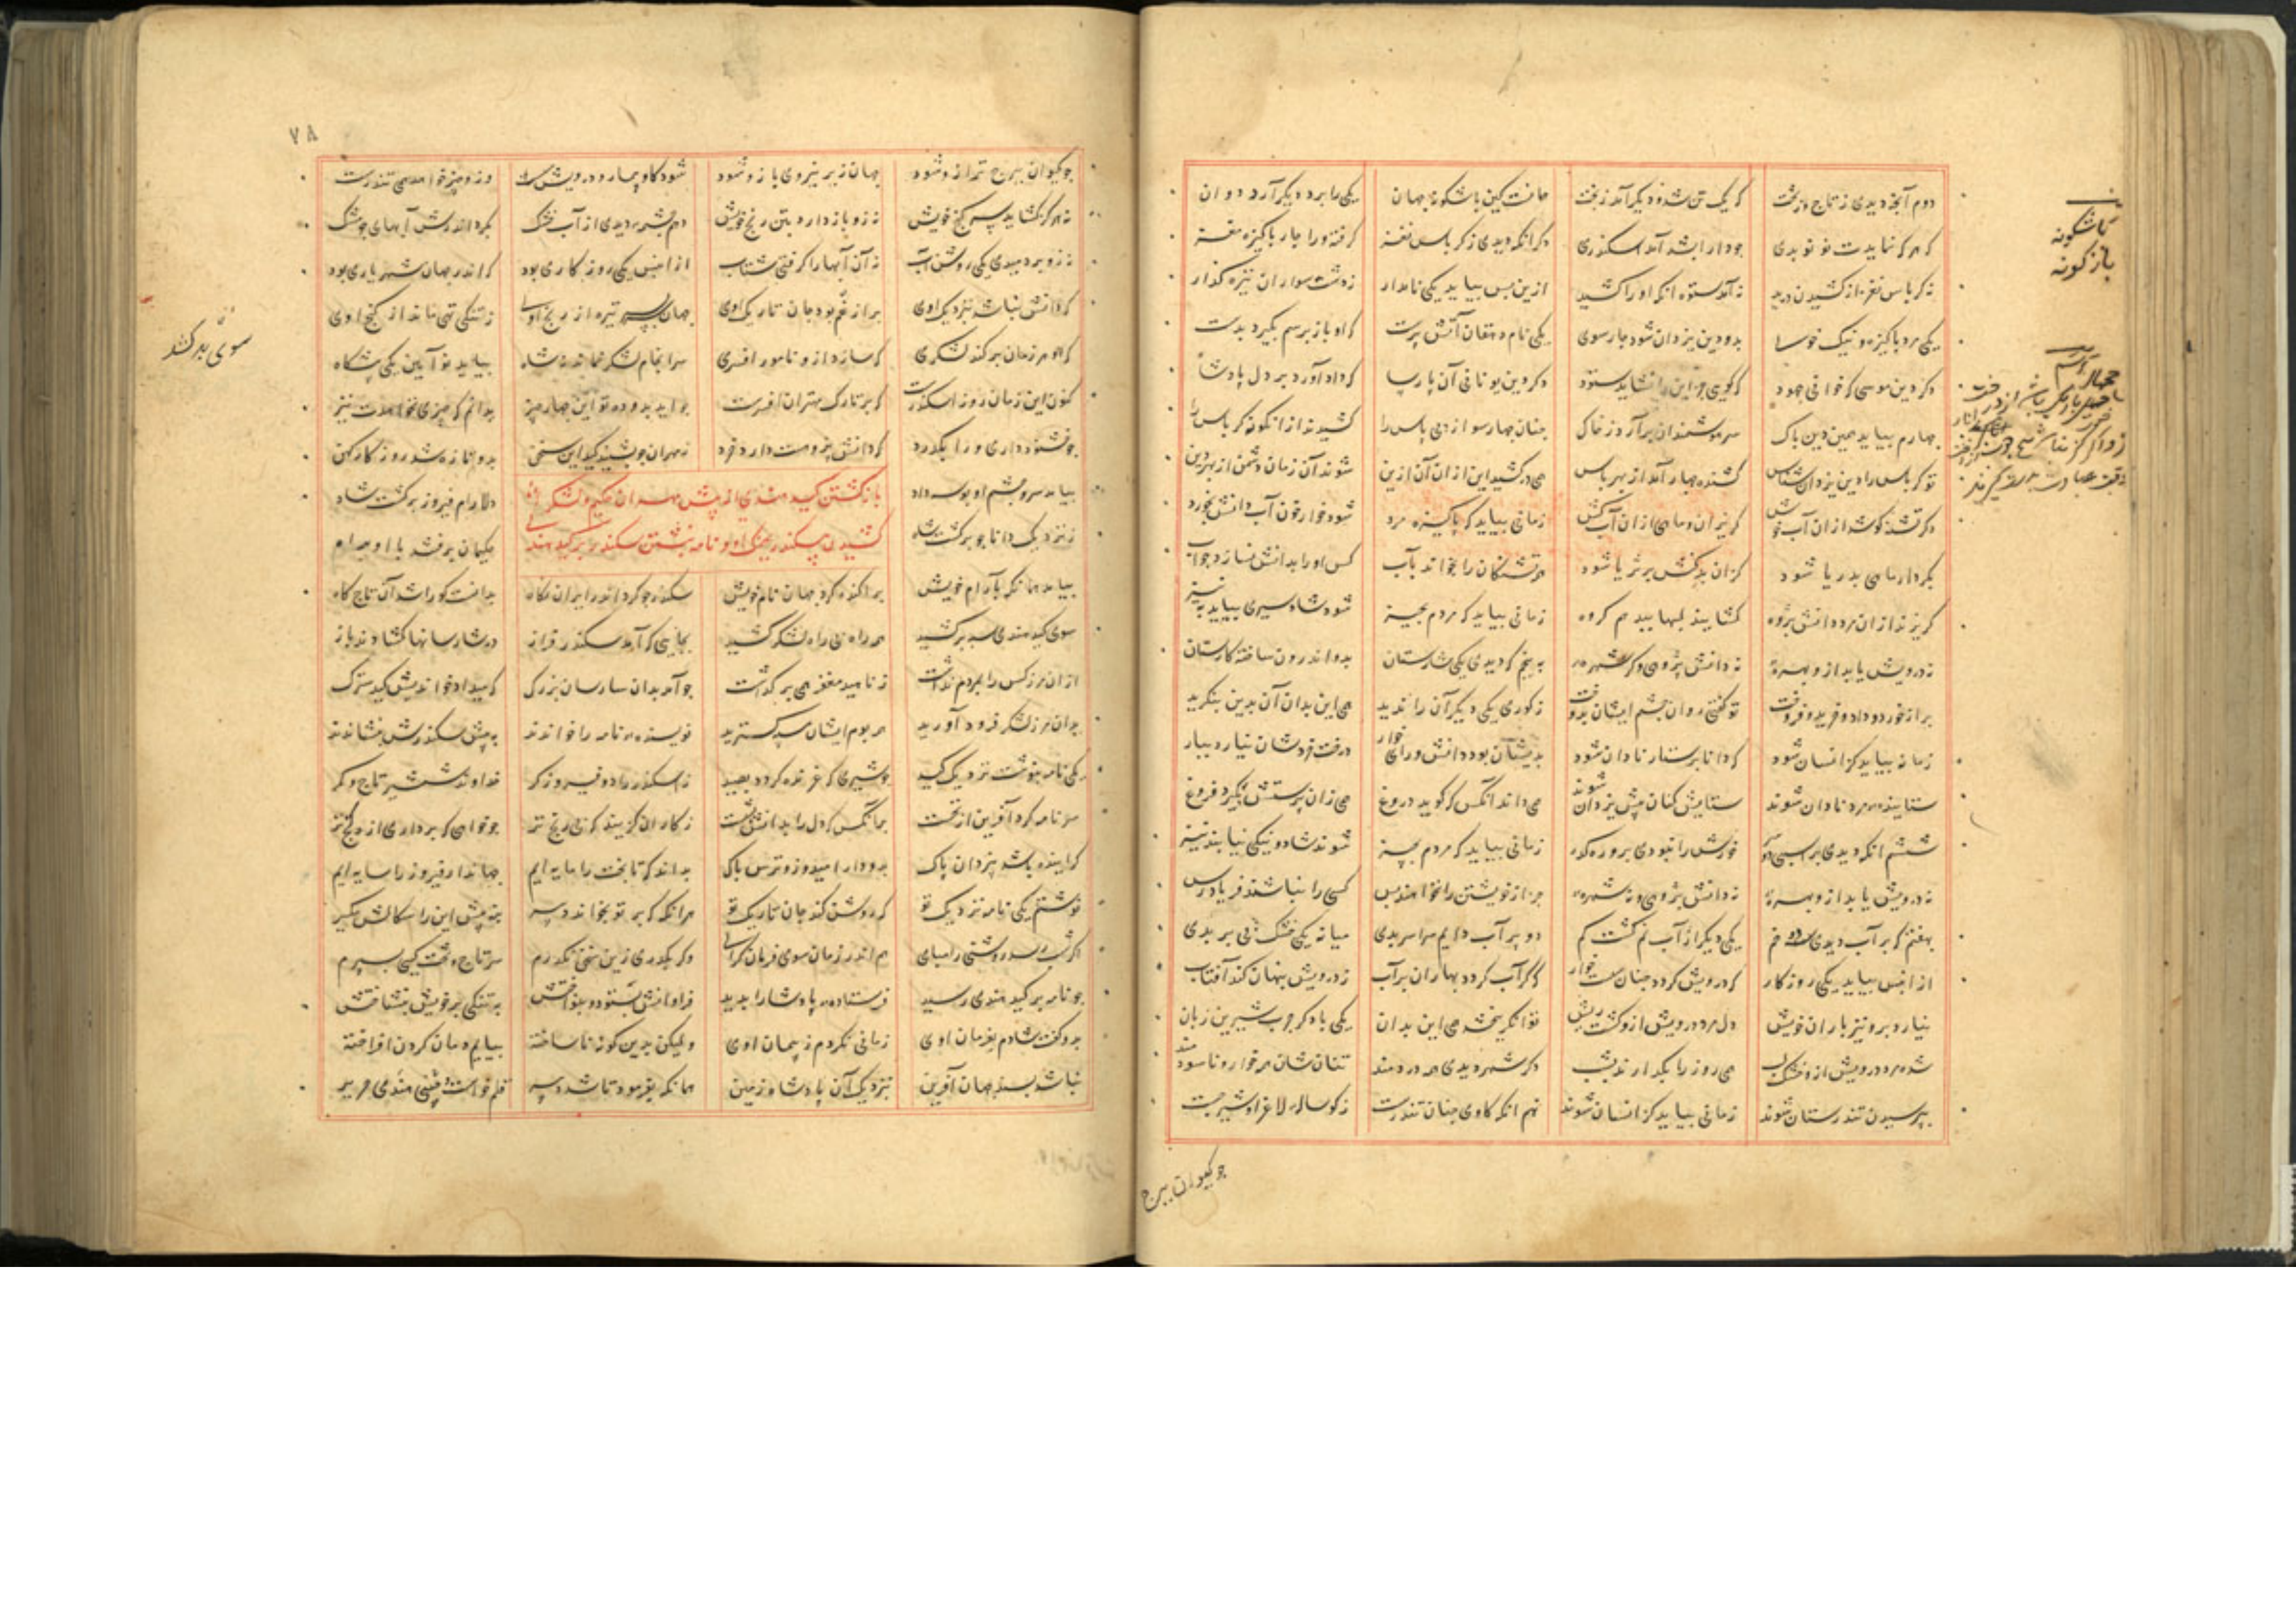 دوم آنچه دیدی ز تاج و ز تخت کز یک تن شده و دیگر آمد ز بخت جهانست کین باشگونه جهان یکی را برد دیگر آرد دوان
که هر کز نمایدت نو نو بدی چو دارا بشد آمد اسکندری دگر آنکه دیدی ز کرباس نغز گرفته ورا چار پاکیزه مغز
نه کرباس نغز از کشیدن درید نه آمد ستوه آنکه او را کشید ازین پس بیاید یکی نامدار ز دشت سواران نیزه گذار
یکی مرد پاکیزه و نیک خو بدو دین یزدان شود چار سوی یکی نام دهقان آتش پرست که او باز برسم بگیرد بدست
دگر دین موسی که خوانی جهود که گوید جز این را نشاید ستود دگر دین یونانی آن پارسا که داد آورد بر دل پادشا
چهارم بیاید همین دین پاک سر هوشمندان برآرد ز خاک چنان چار سو از پی پاس را کشیدند از آنگونه کرباس را
تو کرباس را دین یزدان شناس کشنده چهار آمد از بهر پاس همی درکشید این از آن آن ازین شوند آن زمان دشمن از بهر دین
دگر تشنه کو شد از آن آب خوش گریزان و ماهی از آن آب کش زمانی بیاید که پاکیزه مرد شود خوار چون آب دانش بخورد
بکردار ماهی بدریا شود گر آن بدکنش بر ثریا شود همی تشنگان را بخواند بآب کس او را بدانش نسازد جواب
گریزند از آن مرد دانش پژوه گشایند لبها ببد هم گروه به پنجم که دیدی یکی شارستان بدو اندرون ساخته کارستان
پر از خورد و داد و خرید و فروخت تو گفتی روان چشم ایشان بدوخت ز کوری یکی دیگر آن را ندید همی این بدان آن بدین ننگرید
زمانه بیاید کز انسان شود که دانا پرستار نادان شود بدیشان بود دانش ورای خوار درخت خردشان نیارد ببار
ستاینده مرد نادان شوند ستایش کنان پیش یزدان شوند همی داند آنکس که گوید دروغ همی زان پرستش نگیرد فروغ
ششم آنکه دیدی بر اسبی دو سر خورش را نبودی برو ره گذر زمانی بیاید که مردم بچیز شوند شاد و نیکی نیابند نیز
نه درویش یابد ازو بهره نه دانش پژوهی و نه شهره جز از خویشتن را نخواهند بس کسی را نباشند فریادرس
بهفتم که بر آب دیدی سه خم یکی دیگر از آب نم گشت کم دو پر آب دایم سراسر بدی میانه یکی خشک بی بر بدی
از این پس بیاید یکی روزگار که درویش گردد چنان سست خوار که گر آب گردد بهاران برآب ز درویش پنهان کند آفتاب
نیارد برو نیز باران خویش دل مرد درویش ازو گشت ریش توانگر ببخشد همی این بدان یکی با دگر چرب و شیرین زبان
شده مرد درویش ازو خشک لب همی روز را بگذارند بشب دگر شهر دیدی همه دردمند
بپرسیدن تندرستان شوند زمانی بیاید کز انسان شوند نهم آنکه گاوی چنان تندرست ز گوساله لاغر او شیر جست
باشگونه
بازگونه
چو کیوان ببرج
۷۸
چو کیوان ببرج ترازو شود جهان زیر نیروی بازو شود شود گاو بیمار و درویش سست وزو چیز خواهد همی تندرست
نه هرگز گشاید سر گنج خویش نه زو باز دارد بتن رنج خویش دهم چشمه دیدی از آب خشک بگرد اندرش آبهای چو مشک
نه زو بردمیدی یکی روشن آب نه آن آبها را گرفتی شتاب از این پس یکی روزگاری بود که اندر جهان شهریاری بود
که دانش نباشد بنزدیک اوی پر از غم بود جان تاریک اوی جهان سربسر تیره از رنج اوی ز تنگی تهی ماند از گنج اوی
که هر زمان برکند لشکری که سازد ازو نامور افسری سرانجام لشکر نماند نه شاه بیاید نو آیین یکی پیشگاه
کنون این زمان روز اسکندرست که بر تارک مهتران افسرست چو آید بدو ده تو این چار چیز بدانم که چیزی نخواهدت نیز
چو خشنود داری ورا بگذرد که دانش پژوهست و دارد خرد ز مهران چو بشنید کید این سخن برو تازه شد روزگار کهن
بیامد سر و چشم او بوسه داد بازگشتن کید هندی از پیش مهران حکیم و لشکر دلارام و فیروز برگشت شاه
ز نزدیک دانا چو برگشت شاه کشیدن سکندر بجنگ او و نامه نبشتن سکندر بر کید هند حکیمان برفتند با او براه
بیامد همانگه بآرام خویش پراکنده کرد در جهان نام خویش سکندر چو کرد اندر ایران نگاه بدانست کو را شد آن تاج گاه
سوی کید هندی سپه برکشید همه راه بی راه لشکر کشید بجایی که آمد سکندر فراز در شارسانها گشادند باز
از آن مرز کس را بمردم نداشت ز ناهید مغفر همی برگذاشت چو آمد بدان شارسان بزرگ که میلاد خواندیش کید سترگ
بدان مرز لشکر فرود آورید همه بوم ایشان سپه گسترید نویسنده نامه را خواندند به پیش سکندرش بنشاندند
یکی نامه بنوشت نزدیک کید چو شیری که غرنده گردد بصید ز اسکندر راد فیروزگر خداوند شمشیر و تاج و کمر
سر نامه کرد آفرین از نخست بر آنکس که دل را بدانش بشست ز کاران گزیند که بی رنج تر چو خواهی که برداری از گنج بر
گراینده باشد بیزدان پاک بدو دار امید وزو ترس باک بداند که تا بخت را مایه ایم جهاندار فیروز را سایه ایم
نوشتم یکی نامه نزدیک تو که روشن کند جان تاریک تو هر آنگه که بر تو بخواند دبیر منه پیش این را سگالش مگیر
اگر شب رسد روشنی را مپای هم اندر زمان سوی فرمان گرای وگر بگذری زین سخن نگذرم سر تاج و تخت کیی بسپرم
چو نامه بر کید هندی رسید فرستاده پادشا را بدید فراوانش بستود و بنواختش به تنگی بر خویش بنشاختش
بدو گفت شادم بفرمان اوی زمانی نگردم ز پیمان اوی ولیکن بدین گونه ناساخته بیایم دمان گردن افراخته
نباشد پسند جهان آفرین بنزدیک آن پادشاه زمین همانگه بفرمود تا شد دبیر قلم خواست چینی هندی حریر
سوی بد کند